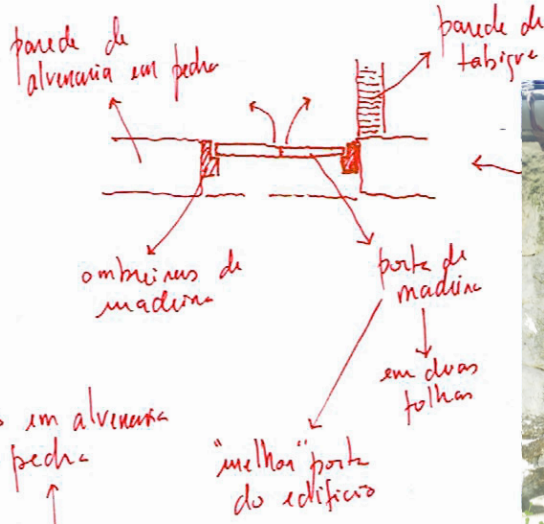 parede de
alvenaria em pedra
parede de
tabique
ombreiras de
madeira
porta de
madeira
em duas
folhas
em alvenaria
pedra
"melhor" porta
do edifício